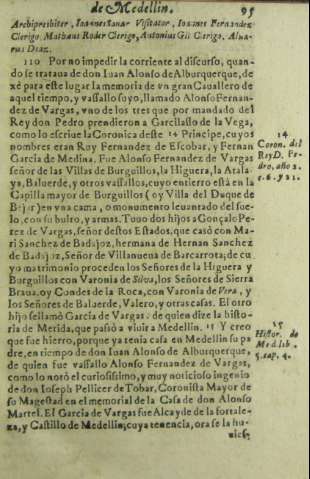 de Medellin. 95
Archipresbiter, Ioannes Ianar Visitator, Ioannes Fernandez
Clerigo, Matheus Roder Clerigo, Antonius Gil Clerigo, Alua-
rus Diaz.
110 Por no impedir la corriente al discurso, quan-
do se trataua de don Iuan Alonso de Alburquerque, de-
xé para este lugar la memoria de vn gran Cauallero de
aquel tiempo, y vassallo suyo, llamado Alonso Fernan-
dez de Vargas, vno de los tres que por mandado del
Rey don Pedro prendieron a Garcilasso de la Vega,
como lo escriue la Coronica deste 14 Principe, cuyos
nombres eran Ruy Fernandez de Escobar, y Fernan
Garcia de Medina. Fue Alonso Fernandez de Vargas
señor de las Villas de Burguillos, la Higuera, la Atala-
ya, Baluerde, y otros vassallos, cuyo entierro està en la
Capilla mayor de Burguillos (oy Villa del Duque de
Bejar) en vna cama, o monumento leuantado del sue-
lo, con su bulto, y armas. Tuuo dos hijos a Gonçalo Pe-
rez de Vargas, señor destos Estados, que casò con Ma-
ri Sanchez de Badajoz, hermana de Hernan Sanchez
de Badajoz, Señor de Villanueua de Barcarrota; de cu
yo matrimonio proceden los Señores de la Higuera y
Burguillos con Varonia de Silva, los Señores de Sierra
Braua, oy Condes de la Roca, con Varonia de Vera, y
los Señores de Baluerde, Valero, y otras casas. El otro
hijo se llamò Garcia de Vargas: de quien dize la histo-
ria de Merida, que passò a viuir a Medellin. 15 Y creo
que fue hierro, porque ya tenia casa en Medellin su pa
dre, en tiempo de don Iuan Alonso de Alburquerque,
de quien fue vassallo Alonso Fernandez de Vargas,
como lo notò el curiosissimo, y muy noticioso ingenio
de don Ioseph Pellicer de Tobar, Coronista Mayor de
su Magestad en el memorial de la Casa de don Alonso
Martel. El Garcia de Vargas fue Alcayde de la fortale-
za, y Castillo de Medellin; cuya tenencia, ora se la hu-
uies-
14
Coron. del
Rey D. Pe-
dro, año 2.
c. 6. y 21.
15
Histor. de
Med. lib.
5. cap. 4.